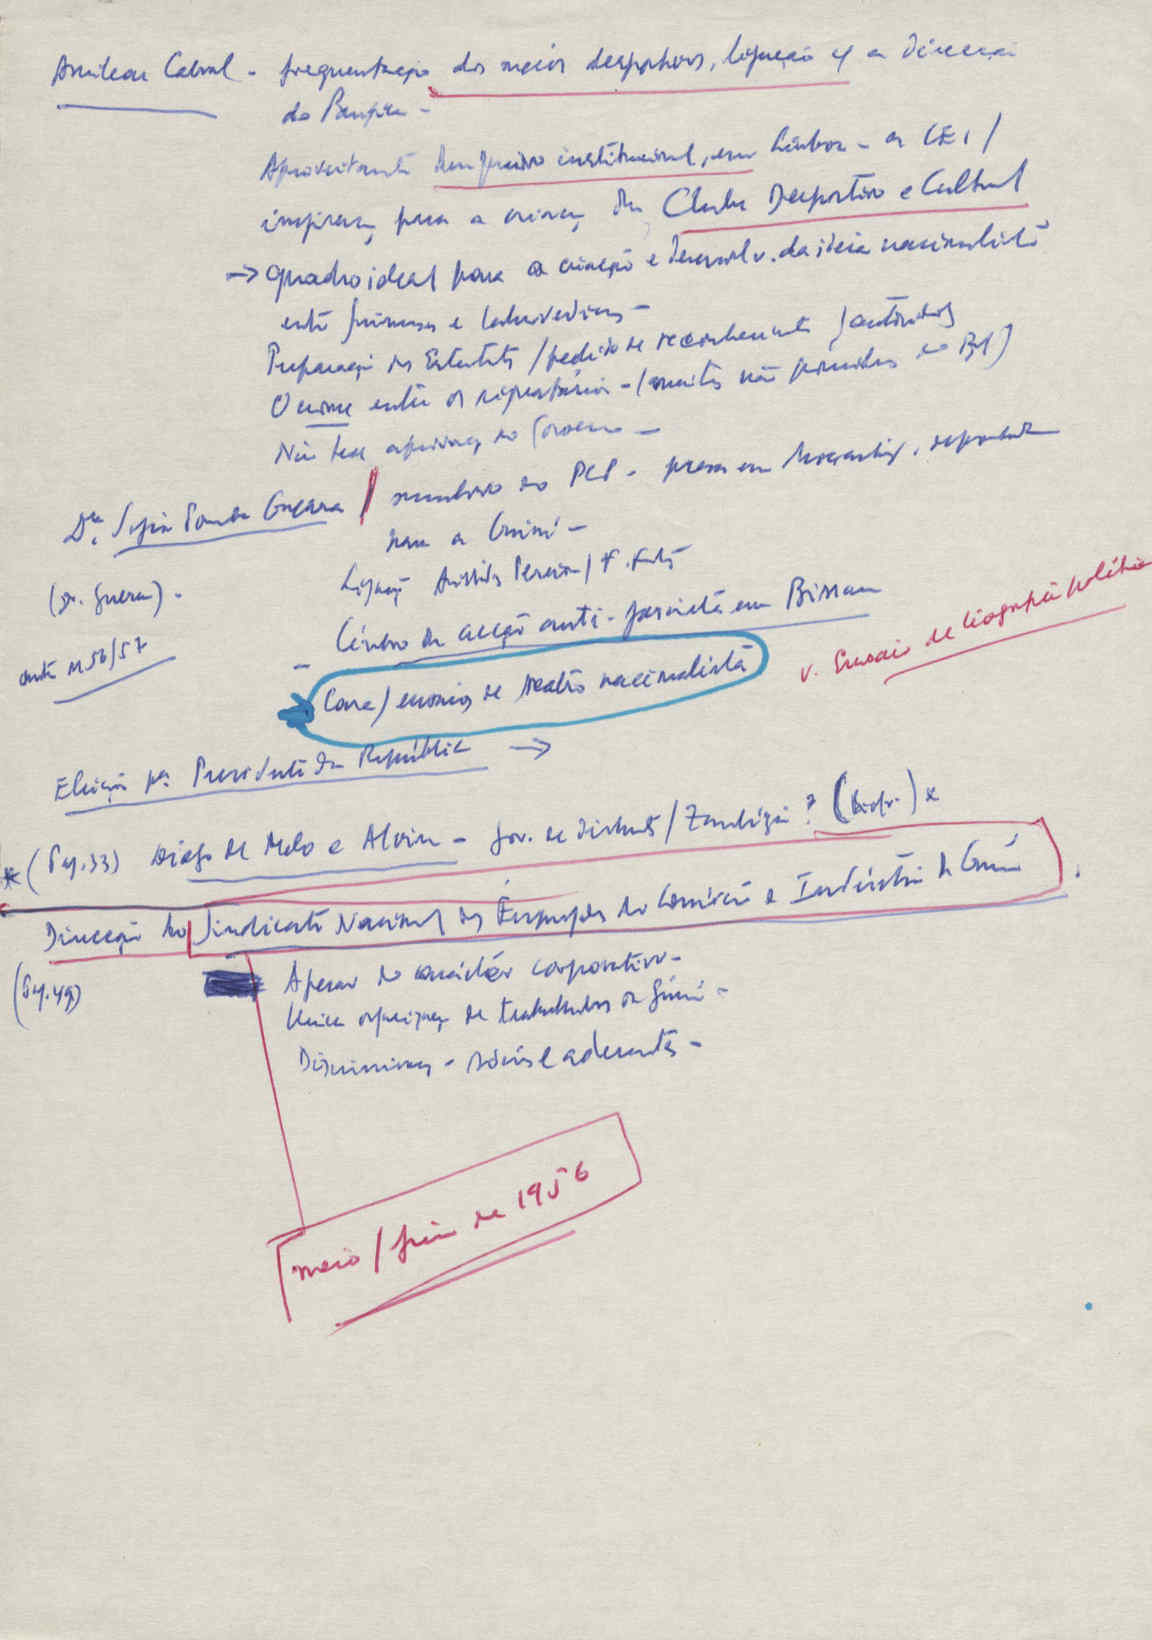 Amílcar Cabral - frequentação dos meios desportivos, ligação c/ a direcção
do Benfica -
Aproveitante um quadro institucional, em Lisboa - a CEI /
inspiraç para a criaç do Clube Desportivo e Cultural
→ quadro ideal para a criação e desenvolv. da ideia nacionalista
entre guineenses e caboverdianos -
Preparação dos Estatutos / pedido de reconhecimento / autoridades
O nome entre os signatários - (muitos não possuidores do BI)
Não teve aprovaç do Governo -
Dra. Sofia Pomba Guerra / membro do PCP - presa em Moçambique, deportada
para a Guiné -
(dr. Guerra) -
Ligação Aristides Pereira / F. Fortes
Centro de acção anti-fascista em Bissau
ante 1956/57
- Casa / ensaios de teatro nacionalista
v. Ensaio de biografia política
Eleição para Presidente da República →
* (Pag. 33) Diogo de Melo e Alvim - gov. de distrito / Zambézia? (Biogr.) x
Direcção do Sindicato Nacional dos Empregados do Comércio e Indústria da Guiné.
(Pag. 49)
Apesar do carácter corporativo -
Única organizaç de trabalhadores da Guiné -
Discriminaç - sócios e aderentes -
meio / fim de 1956